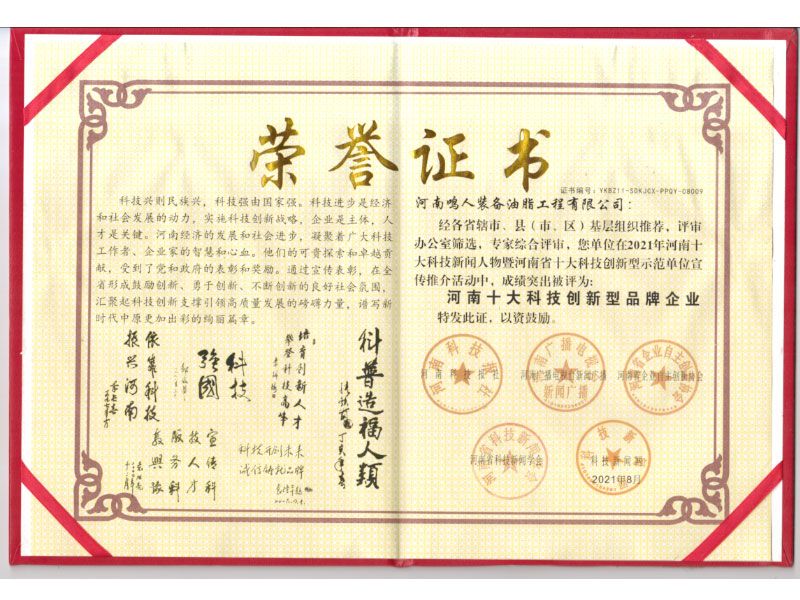 荣誉证书
证书编号：YKBZ11-SDKJCX-PPQY-08009
科技兴则民族兴，科技强由国家强。科技进步是经济
和社会发展的动力，实施科技创新战略，企业是主体，人
才是关键。河南经济的发展和社会进步，凝聚着广大科技
工作者、企业家的智慧和心血。他们的可贵探索和卓越贡
献，受到了党和政府的表彰和奖励。通过宣传表彰，在全
省形成鼓励创新、勇于创新、不断创新的良好社会氛围，
汇聚起科技创新支撑引领高质量发展的磅礴力量，谱写新
时代中原更加出彩的绚丽篇章。
依靠科技
振兴河南
科技
强国
培育创新人才
攀登科技高峰
科普造福人类
宣传科
技人才
服务科
教兴豫
河南鸣人装备油脂工程有限公司：
经各省辖市、县（市、区）基层组织推荐，评审
办公室筛选，专家综合评审，您单位在2021年河南十
大科技新闻人物暨河南省十大科技创新型示范单位宣
传推介活动中，成绩突出被评为：
河南十大科技创新型品牌企业
特发此证，以资鼓励。
河南科技报社
河南广播电视台新闻广播
河南省企业自主创新协会
河南省科技新闻学会
科技新闻网
2021年8月